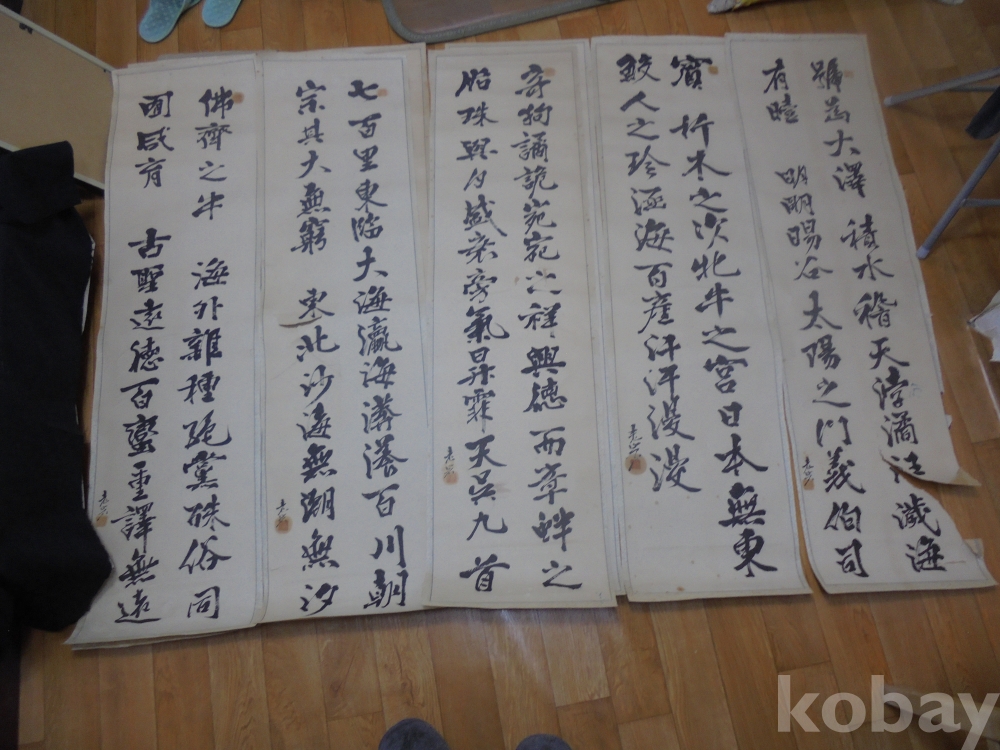 號爲大澤 積水稽天浡潏汪濊海
有曀 明明暘谷太陽之門羲伯司
賓 析木之次牝牛之宮日本無東
鮫人之珍涵海百産汗汗漫漫
奇物譎詭宛宛之祥興德而章蚌之
胎珠與月盛衰旁氣昇霏天吳九首
七百里東臨大海瀛海漭瀁百川朝
宗其大無窮 東北沙海無潮無汐
佛齊之牛 海外雜種絶黨殊俗同
囿咸育 古聖遠德百蠻重譯無遠
kobay